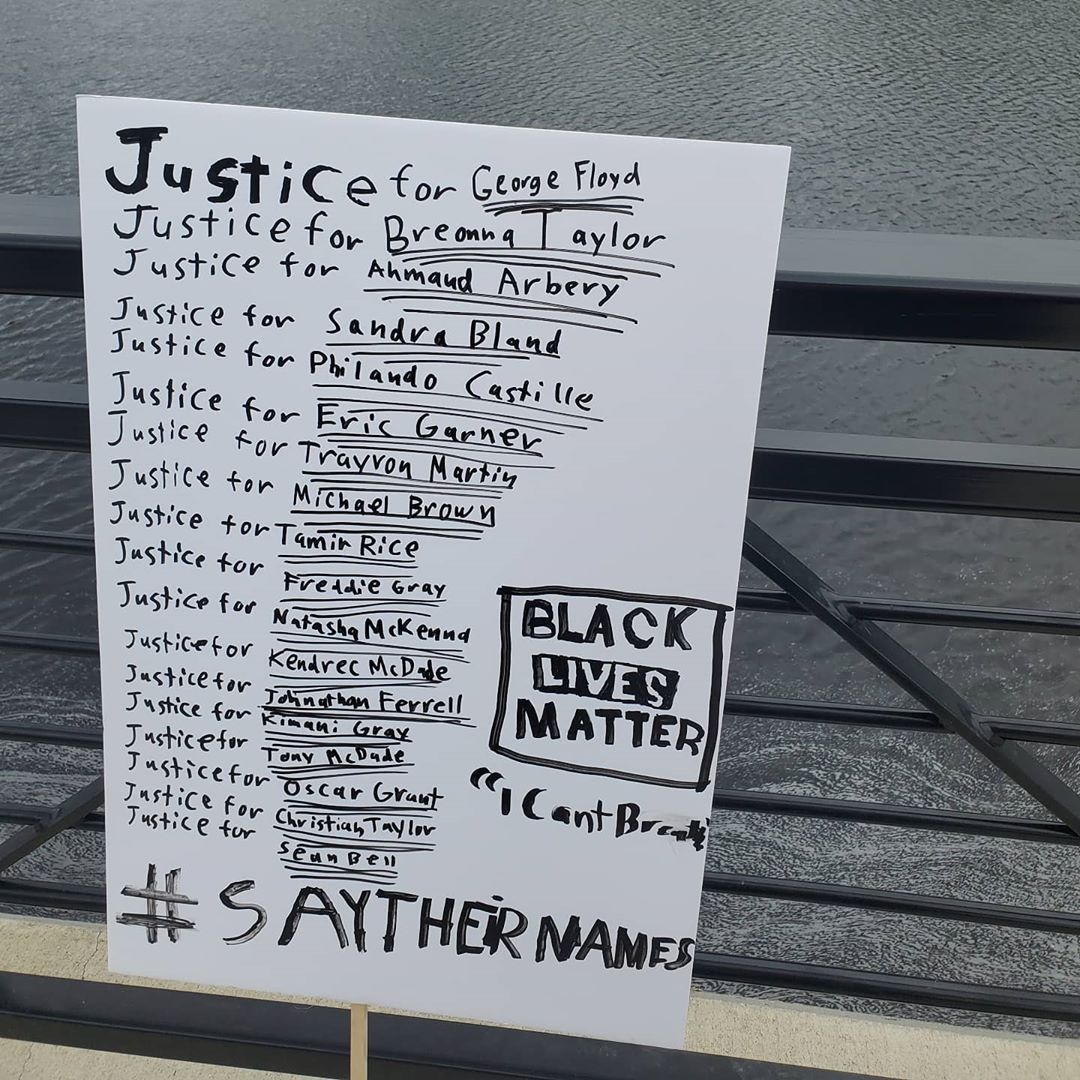 Justice for George Floyd
Justice for Breonna Taylor
Justice for Ahmaud Arbery
Justice for Sandra Bland
Justice for Philando Castille
Justice for Eric Garner
Justice for Trayvon Martin
Justice for Michael Brown
Justice for Tamir Rice
Justice for Freddie Gray
Justice for Natasha McKenna
Justice for Kendrec McDade
Justice for Johnathan Ferrell
Justice for Kimani Gray
Justice for Tony McDade
Justice for Oscar Grant
Justice for Christian Taylor
Justice for Sean Bell
BLACK
LIVES
MATTER
"I Cant
#SAYTHEIRNAMES